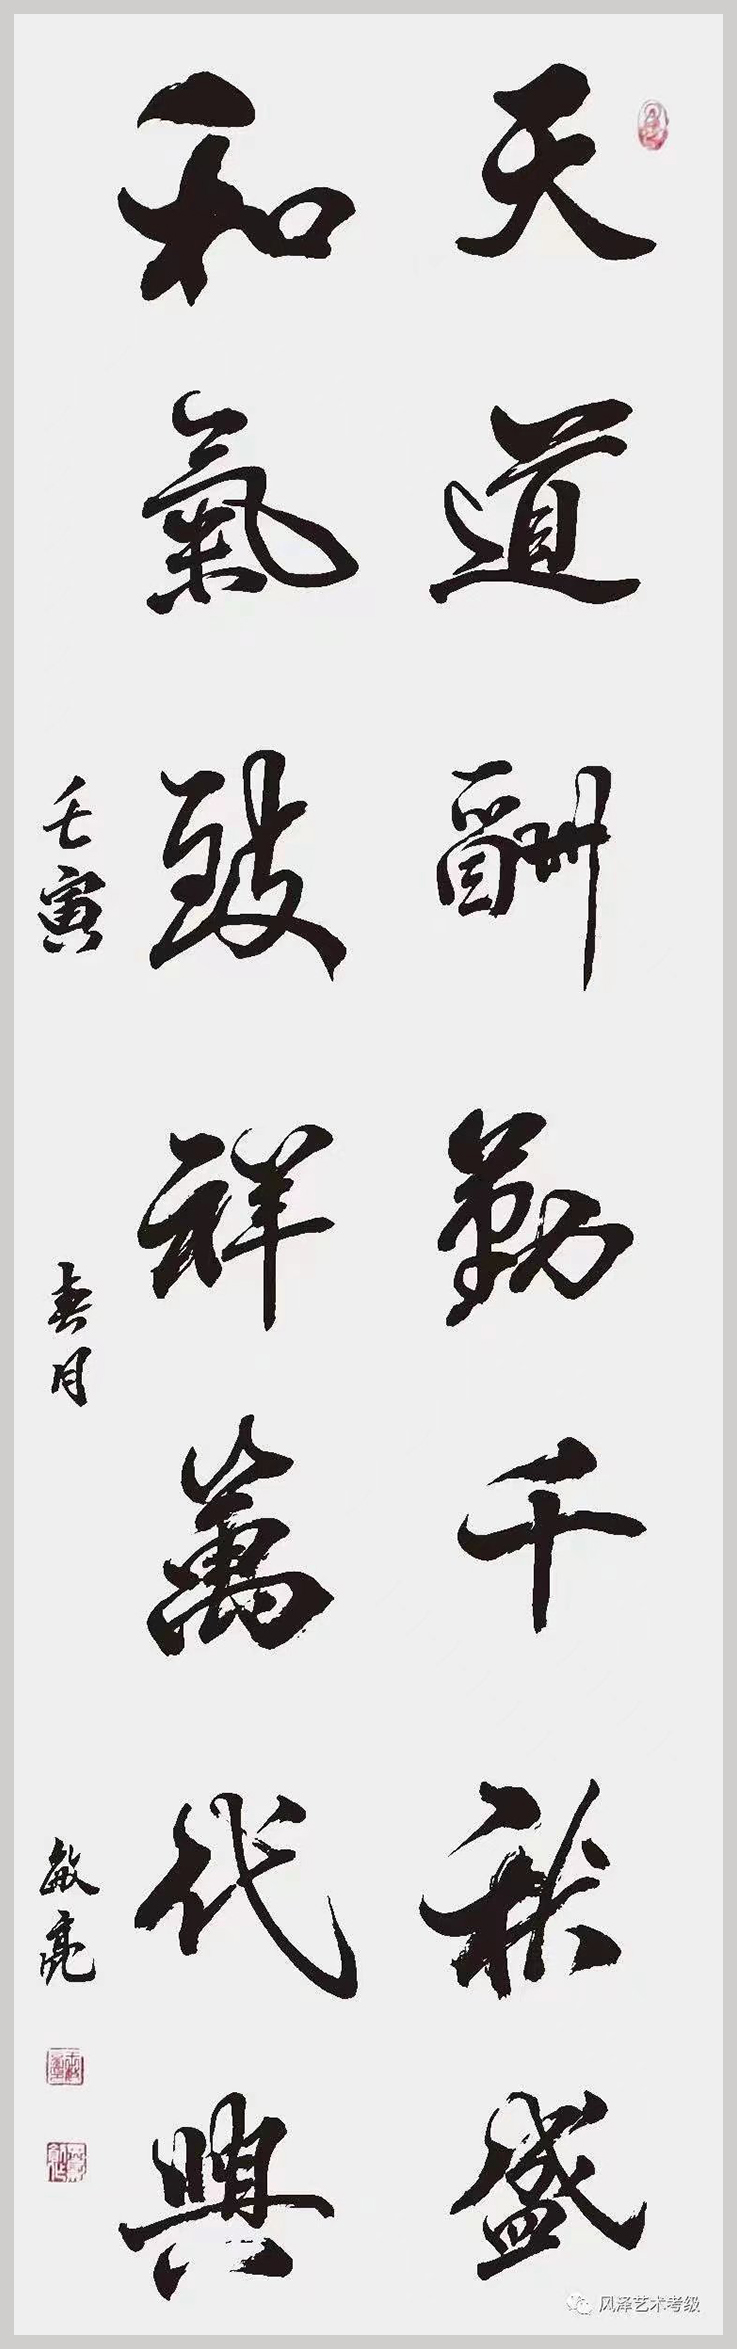 天道酬勤千秋盛
和氣致祥萬代興
壬寅 春月 敏亮
风泽艺术考级